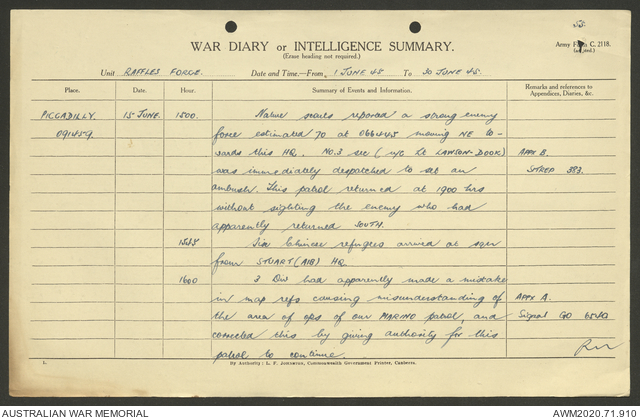 WAR DIARY or INTELLIGENCE SUMMARY.
(Erase heading not required.)
Army Form C. 2118.
Unit RAFFLES FORCE. Date and Time—From 1 JUNE 45 To 30 JUNE 45.
Place. Date. Hour. Summary of Events and Information. Remarks and references to Appendices, Diaries, &c.
PICCADILLY 15 JUNE. 1500. Native scouts reported a strong enemy
091459. force estimated 70 at 066445 moving NE to-
wards this HQ. No.3 sec (u/c Lt LAWSON-DOOK) APPX B.
was immediately despatched to set an SITREP 383.
ambush. This patrol returned at 1900 hrs
without sighting the enemy who had
apparently returned SOUTH.
Six Chinese refugees arrived at
from STUART (AIB) HQ
1600 3 Div had apparently made a mistake
in map refs causing misunderstanding of APPX A.
the area of ops of our MARINO patrol, and Signal GO
corrected this by giving authority for this
patrol to continue.
1. By Authority: L. F. JOHNSTON, Commonwealth Government Printer, Canberra.
AUSTRALIAN WAR MEMORIAL AWM2020.71.910